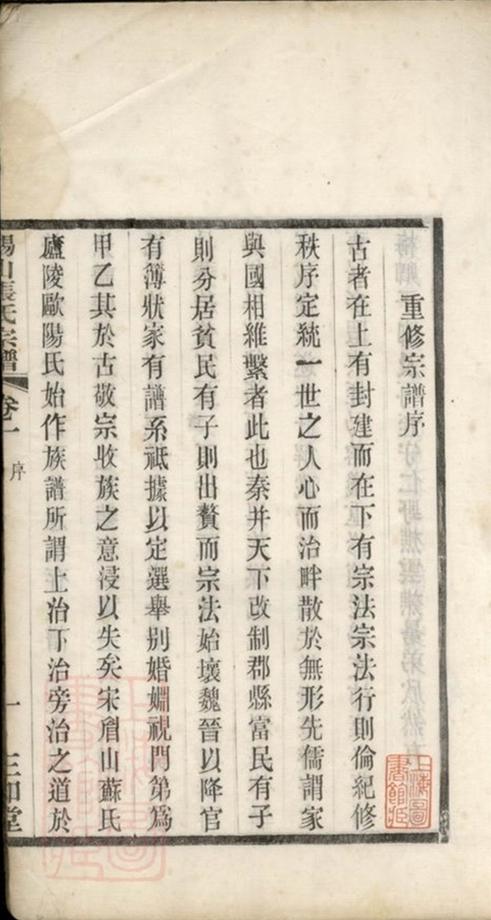 重修宗譜序
古者在上有封建而在下有宗法宗法行則倫紀修
秩序定統一世之人心而治畔散於無形先儒謂家
與國相維繫者此也秦并天下改制郡縣富民有子
則分居貧民有子則出贅而宗法始壞魏晉以降官
有簿狀家有譜系祗據以定選舉别婚姻視門第為
甲乙其於古敬宗收族之意浸以失矣宋眉山蘇氏
廬陵歐陽氏始作族譜所謂上治下治旁治之道於
錫山張氏宗譜
卷一
序
一
上海圖書館藏